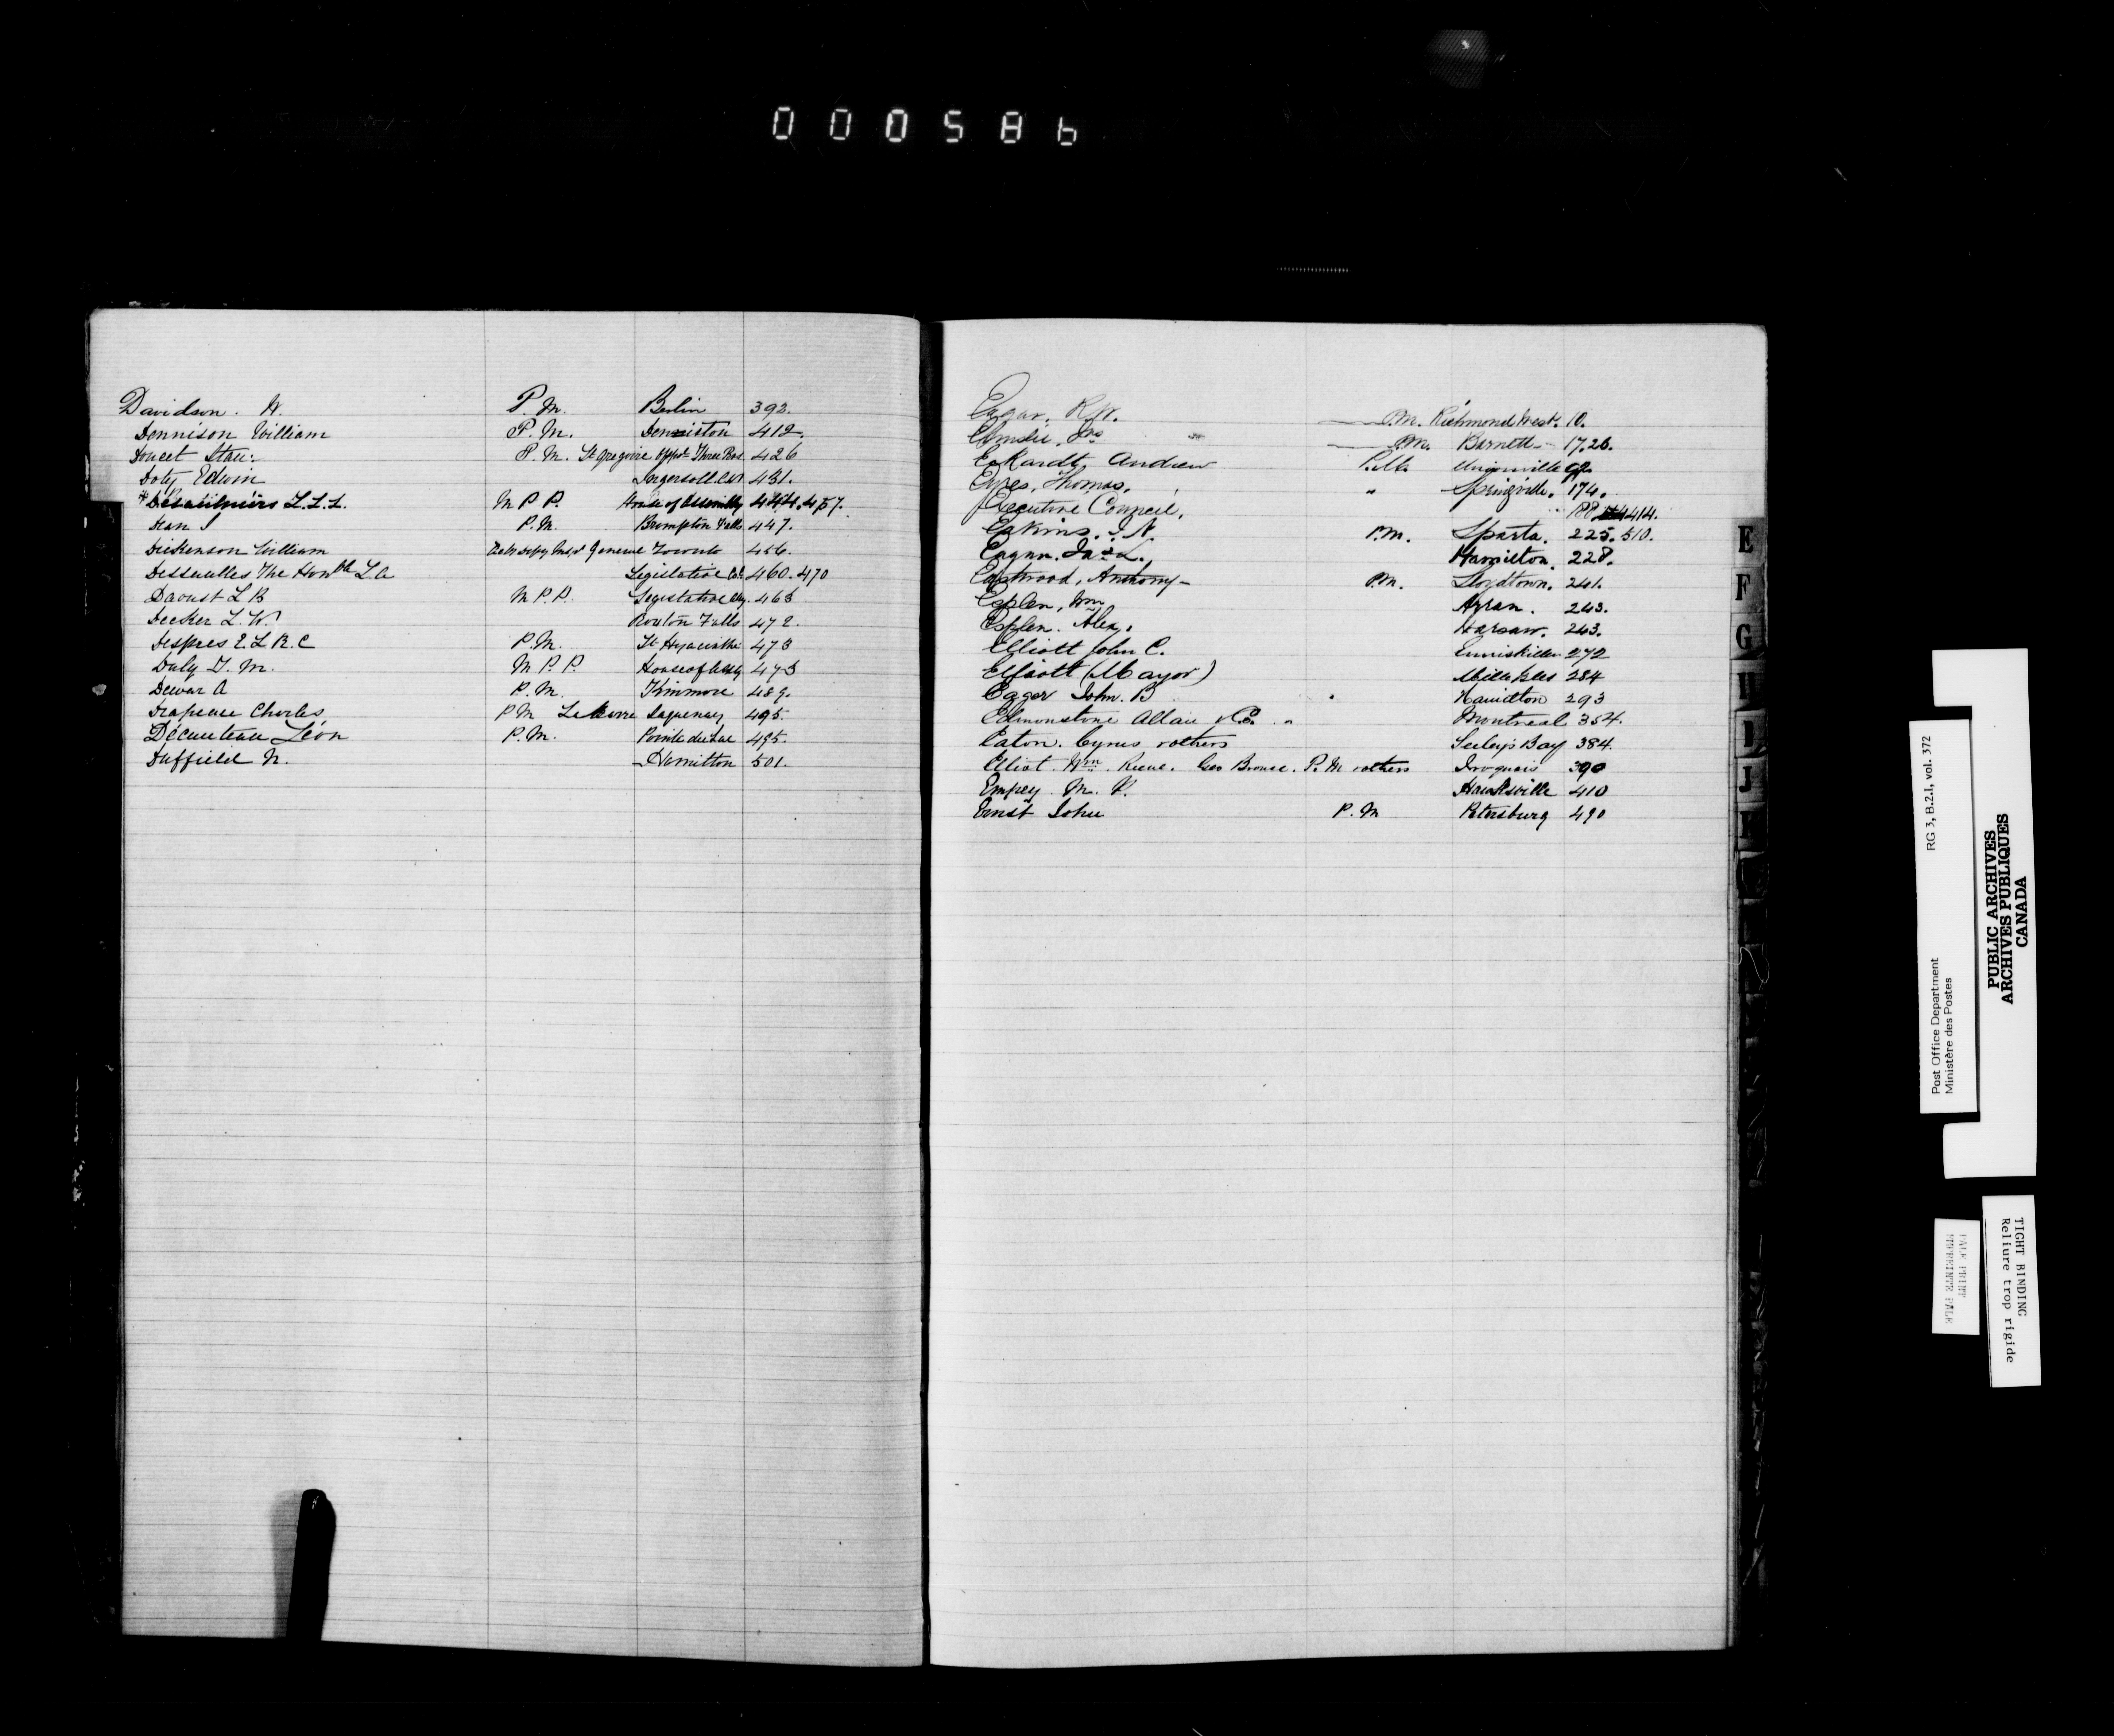 000586
Davidson. W. P.M. Berlin 392.
Dennison William P.M. Denniston 412.
Doucet P.M. St Gregoire Oppte Three Rivs. 426
Doty Edwin Ingersoll C.W 431.
*Desaulniers L.L.L. M.P.P. House of Assembly 444.457.
Dean J P.M. Brompton Falls 447.
Dickenson William General Toronto 456.
Dessaulles The Honble L.A Legislative Col. 460.470
Daoust J.B M.P.P. Legislative
Decker L.W. Roxton Falls 472.
Despres E.L.R.C P.M. St Hyacinthe 473
Daly T.M. M.P.P. House of Assbly 473
Dewar A P.M. Kinmore 489.
Drapeau Charles P.M Saguenay 495.
Décauteau Léon P.M. Pointe du Lac 495.
Duffield N. Hamilton 501.
Edgar, R.W. P.M. Richmond West. 10.
Elmslie, Jno P.M. Barnett 17.26.
Eckardt, Andrew P.M. Unionville 92.
Eyres, Thomas, " Springville. 174.
Executive Council, 188 414.
Eakins, J.N. P.M. Sparta. 225.510.
Eagar. Jas L. Hamilton. 228.
Eastwood, Anthony P.M. Lloydtown. 241.
Esplen, Wm Arran. 243.
Esplen. Alex. Warsaw. 243.
Elliott John C. Enniskillen 272
Elliott (Mayor) 284
Eager John. B Hamilton 293
Edmonstone Allan & Co. Montreal 354.
Eaton. Cyrus & others Seeley's Bay 384.
Elliot. Wm. Reeve. Geo Brouse. P.M & others Iroquois 390
Empey. M.P. Hawksville 410
Ernst John P.M Petersburg 490
E
F
G
I
J
Post Office Department
Ministère des Postes
RG 3, B.2.I, vol. 372
PUBLIC ARCHIVES
ARCHIVES PUBLIQUES
CANADA
PALE PRINT
IMPRIMTE PALE
TIGHT BINDING
Reliure trop rigide